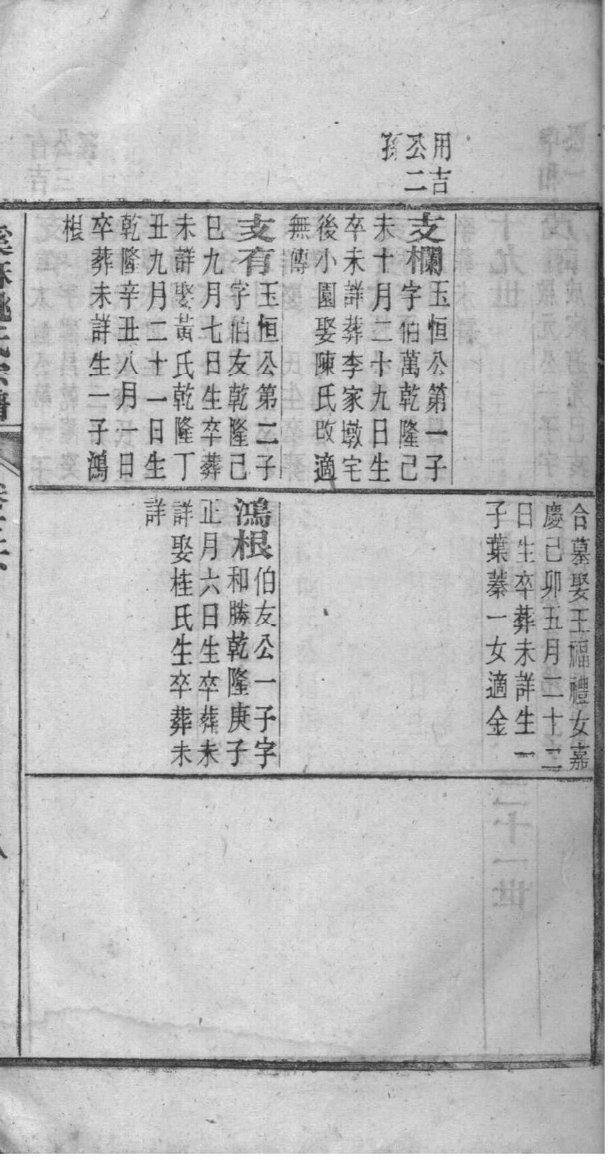 用吉
公二
孫
支欄玉恒公第一子
字伯萬乾隆己
未十月二十九日生
卒未詳葬李家墩宅
後小園娶陳氏改適
無傳
支有玉恒公第二子
字伯友乾隆己
巳九月七日生卒葬
未詳娶黃氏乾隆丁
丑九月二十一日生
乾隆辛丑八月一日
卒葬未詳生一子鴻
根
合墓娶王福禮女嘉
慶己卯五月二十二
日生卒葬未詳生一
子葉蓁一女適金
鴻根伯友公一子字
和勝乾隆庚子
正月六日生卒葬未
詳娶桂氏生卒葬未
詳
氏宗譜